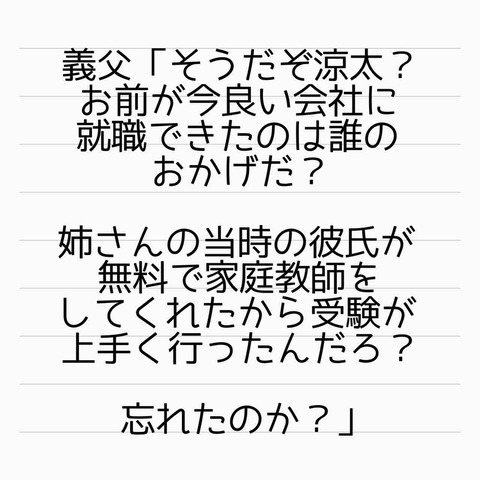 義父「そうだぞ涼太？
お前が今良い会社に
就職できたのは誰の
おかげだ？
姉さんの当時の彼氏が
無料で家庭教師を
してくれたから受験が
上手く行ったんだろ？
忘れたのか？」